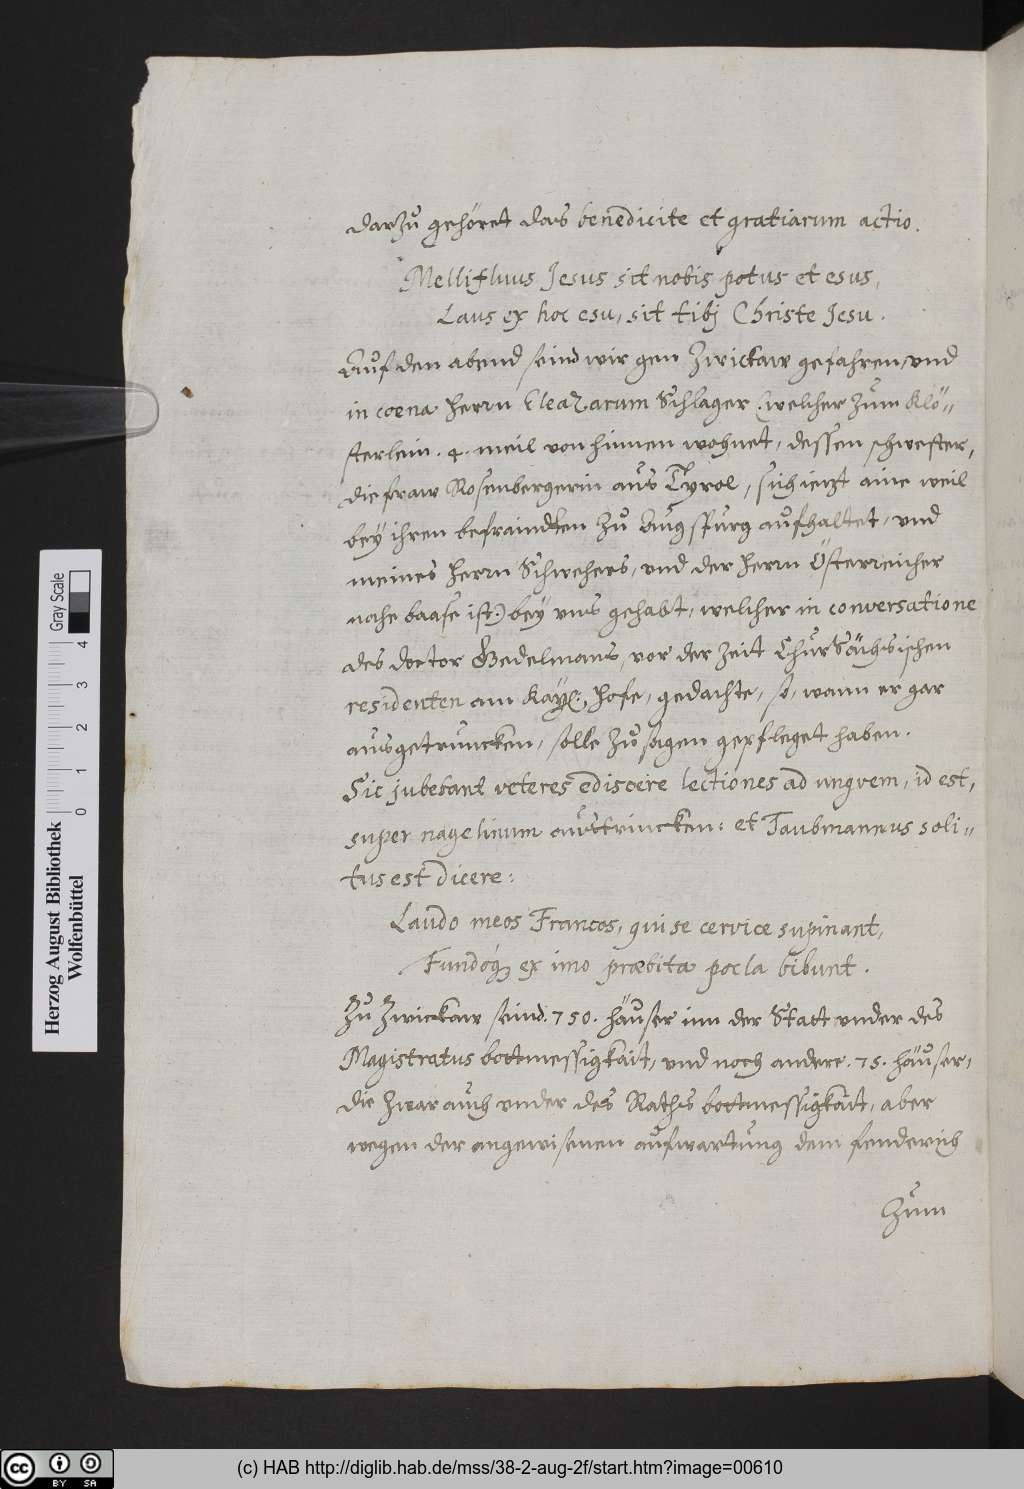 darzu gehöret das benedicite et gratiarum actio.
Mellifluus Jesus sit nobis potus et esus,
Laus ex hoc esu, sit tibj Christe Jesu.
Auf den abend seind wir gen Zwickaw gefahren, und
in coena herrn Eleazarum Schlager (welcher zum Klö„
sterlein .4. meil von hinnen wohnet, dessen schwester,
die fraw Rosenbergerin aus Tyrol, sich iezt aine weil
bey ihren befraindten zu Augspurg aufhaltet, und
meines herrn Schwehers, und der herrn Österreicher
nahe baase ist:) bey uns gehabt, welcher in conversatione
des doctor Gedelmans, vor der zeit ChurSächsischen
residenten am Kay: hofe, gedachte, so, wann er gar
ausgetruncken, solle zu sagen gepfleget haben.
Sic jubebant veteres ediscere lectiones ad ungvem, id est,
super nagelinum austrincken: et Taubmannus soli„
tus est dicere:
Laudo meos Francos, qui se cervice supinant,
Fundoq; ex imo præbita pocla bibunt.
Zu Zwickaw seind .750. häuser inn der Statt under des
Magistratus bottmessigkait, und noch andere .75. häuser,
die zwar auch under des Raths bottmessigkait, aber
wegen der angewisenen aufwartung dem fenderich
zum
Herzog August Bibliothek
Wolfenbüttel
Gray Scale
0 1 2 3 4
cc BY SA
(c) HAB http://diglib.hab.de/mss/38-2-aug-2f/start.htm?image=00610